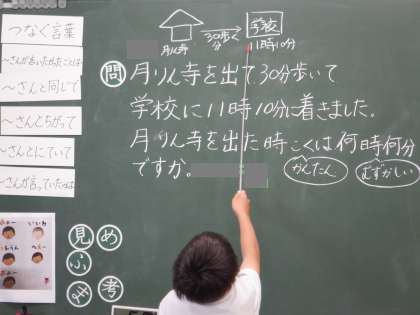 つなぐ言葉
～さんが言いたかったことは
～さんと同じで
～さんとちがって
～さんとにていて
～さんが言っていたのは
月りん寺
30分歩く
学校
11時10分
問 月りん寺を出て30分歩いて
学校に11時10分に着きました。
月りん寺を出た時こくは何時何分
ですか。
かんたん
むずかしい
見
め
ふ
ま
考